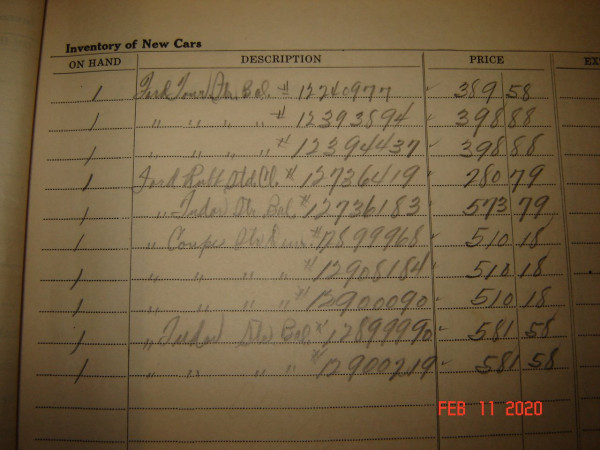 Inventory of New Cars
ON HAND DESCRIPTION PRICE EX
1 Ford Tour Str. Bal. # 12240977 389 58
1 " " " " # 12393894 398 88
1 " " " " # 12394437 398 88
1 Ford # 12736419 280 79
1 " Tudor Str. Bal. # 12736183 573 79
1 " Coupe # 12899968 510 18
1 " " " " # 12908184 510 18
1 " " " " # 12900090 510 18
1 " Str. Bal. # 12899990 581 58
1 " " " " # 12900219 581 58
FEB 11 2020